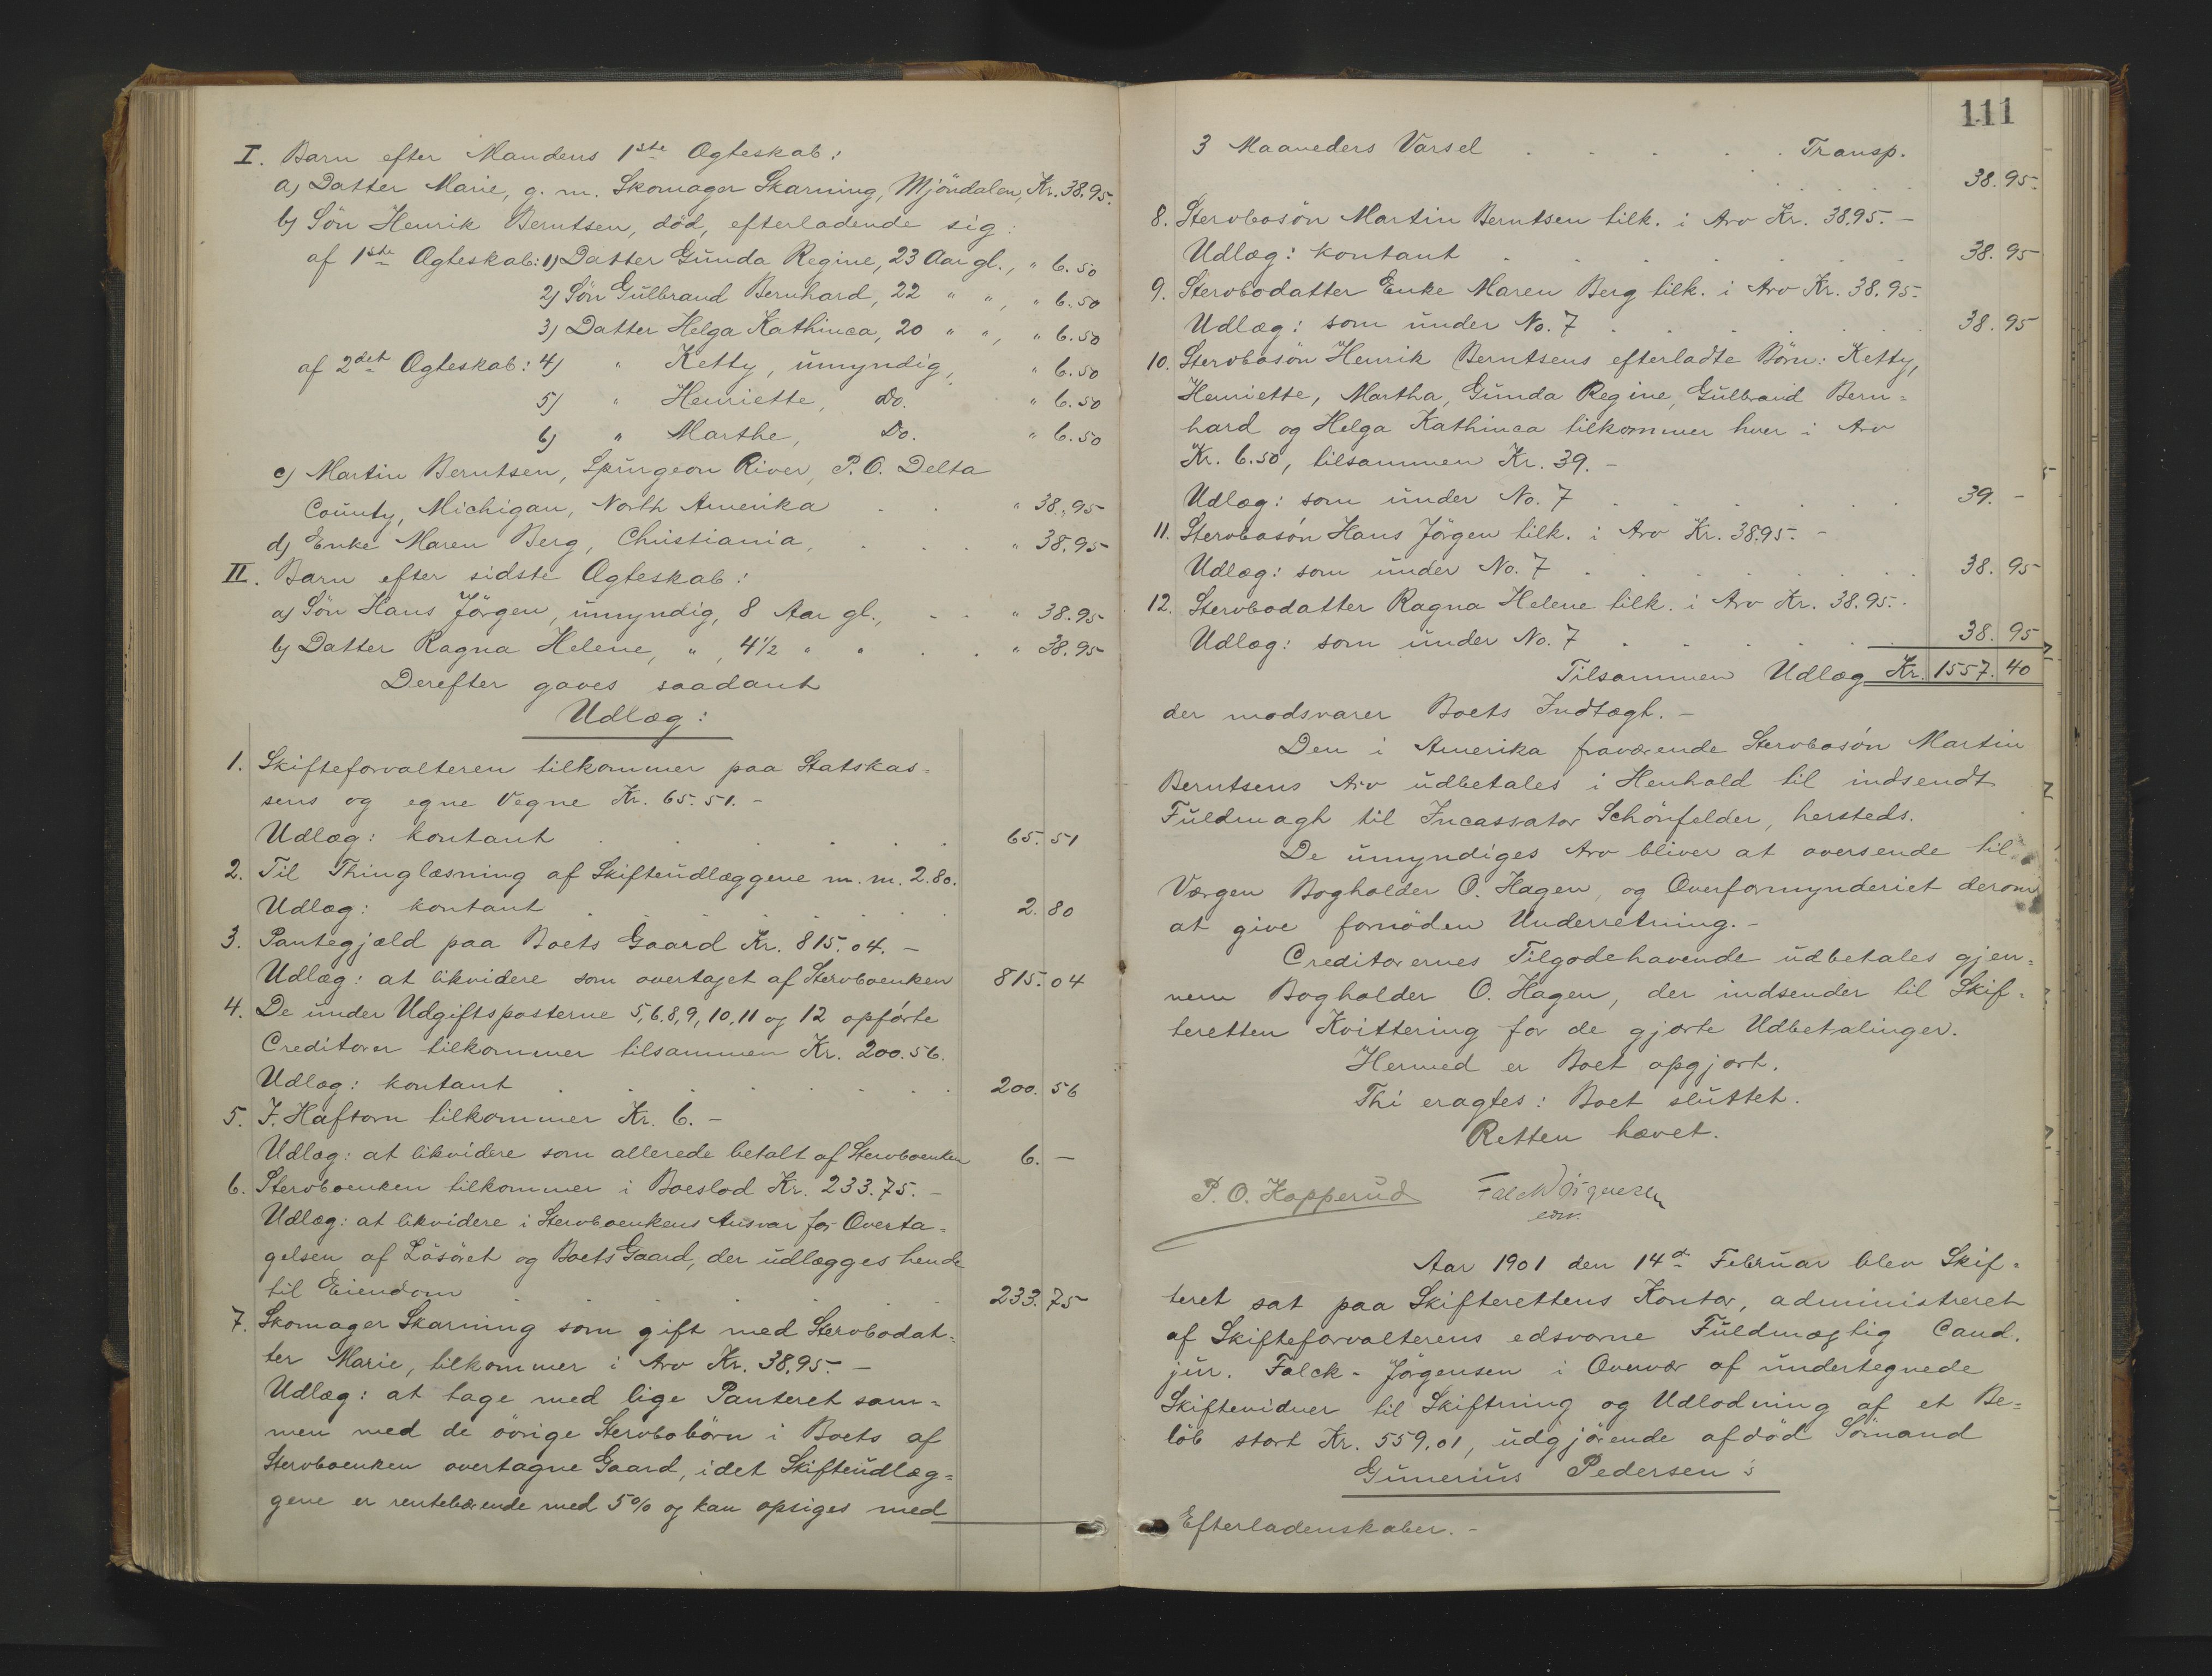 I. Barn efter Mandens 1ste Ægteskab:
a) Datter Marie, g. m. Skomager Skarning, Mjöndalen, Kr. 38.95.
b) Sön Henrik Berntsen, död, efterladende sig:
af 1ste Ægteskab: 1) Datter Gunda Regine, 23 Aar gl., " 6.50
2) Sön Gulbrand Bernhard, 22 " ", " 6.50
3) Datter Helga Kathinca, 20 " ", " 6.50
af 2det Ægteskab: 4) " Ketty, umyndig, " 6.50
5) " Henriette, Do. " 6.50
6) " Marthe, Do. " 6.50
c) Martin Berntsen, Spurgeon River, P. O. Delta
County, Michigan, North Amerika . . " 38.95
d) Enke Maren Berg, Christiania, . . . " 38.95
II. Barn efter sidste Ægteskab:
a) Sön Hans Jörgen, umyndig, 8 Aar gl., - . " 38.95
b) Datter Ragna Helene, ", 4 1/2 " " . . " 38.95
Derefter gaves saadant
Udlæg:
1. Skifteforvalteren tilkommer paa Statskas=
sens og egne Vegne Kr. 65.51. -
Udlæg: kontant . . . . . 65.51
2. Til Thinglæsning af Skifteudlæggene m. m. 2.80.
Udlæg: kontant . . . . . 2.80
3. Pantegjæld paa Boets Gaard Kr. 815.04. -
Udlæg: at likvidere som overtaget af Stervboenken 815.04
4. De under Udgiftsposterne 5,6,8,9,10,11 og 12 opförte
Creditorer tilkommer tilsammen Kr. 200.56.
Udlæg: kontant . . . . . 200.56
5. F. Haftorn tilkommer Kr. 6. -
Udlæg: at likvidere som allerede betalt af Stervboenken 6. -
6. Stervboenken tilkommer i Boeslod Kr. 233.75. -
Udlæg: at likvidere i Stervboenkens Ansvar for Overta=
gelsen af Lösöret og Boets Gaard, der udlægges hende
til Eiendom . . . . . 233.75
7. Skomager Skarning som gift med Stervbodat=
ter Marie, tilkommer i Arv Kr. 38.95. -
Udlæg: at tage med lige Panteret sam=
men med de övrige Stervbobörn i Boets af
Stervboenken overtagne Gaard, idet Skifteudlæg=
gene er rentebærende med 5% og kan opsiges med
111
3 Maaneders Varsel . . . . . Transp.
38.95.
8. Stervbosön Martin Berntsen tilk. i Arv Kr. 38.95. -
Udlæg: kontant . . . . . 38.95
9. Stervbodatter Enke Maren Berg tilk. i Arv Kr. 38.95.
Udlæg: som under No. 7 . . . . . 38.95
10. Stervbosön Henrik Berntsens efterladte Börn: Ketty,
Henriette, Martha, Gunda Regine, Gulbrand Bern=
hard og Helga Kathinca tilkommer hver i Arv
Kr. 6.50, tilsammen Kr. 39. -
Udlæg: som under No. 7 . . . . . 39. -
11. Stervbosön Hans Jörgen tilk. i Arv Kr. 38.95. -
Udlæg: som under No. 7 . . . . . 38.95
12. Stervbodatter Ragna Helene tilk. i Arv Kr. 38.95. -
Udlæg: som under No. 7 . . . . . 38.95
Tilsammen Udlæg Kr. 1557.40
der modsvarer Boets Indtægt. -
Den i Amerika fraværende Stervbosön Martin
Berntsens Arv udbetales i Henhold til indsendt
Fuldmagt til Incassator Schönfelder, hersteds.
De umyndiges Arv bliver at oversende til
Værgen Bogholder O. Hagen, og Overformynderiet derom
at give fornöden Underretning. -
Creditorernes Tilgodehavende udbetales gjen=
nem Bogholder O. Hagen, der indsender til Skif=
teretten Kvittering for de gjorte Udbetalinger.
Hermed er Boet opgjort.
Thi eragtes: Boet sluttet.
Retten hævet.
P. O. Kopperud Falck Jörgensen
edsv.
Aar 1901 den 14d Februar blev Skif=
teret sat paa Skifterettens Kontor, administreret
af Skifteforvalterens edsvorne Fuldmægtig Cand.
jur. Falck-Jörgensen i Overvær af undertegnede
Skiftevidner til Skiftning og Udlodning af et Be=
löb stort Kr. 559.01, udgjörende afdöd Sömand
Gunerius Pedersen's
Efterladenskaber. -